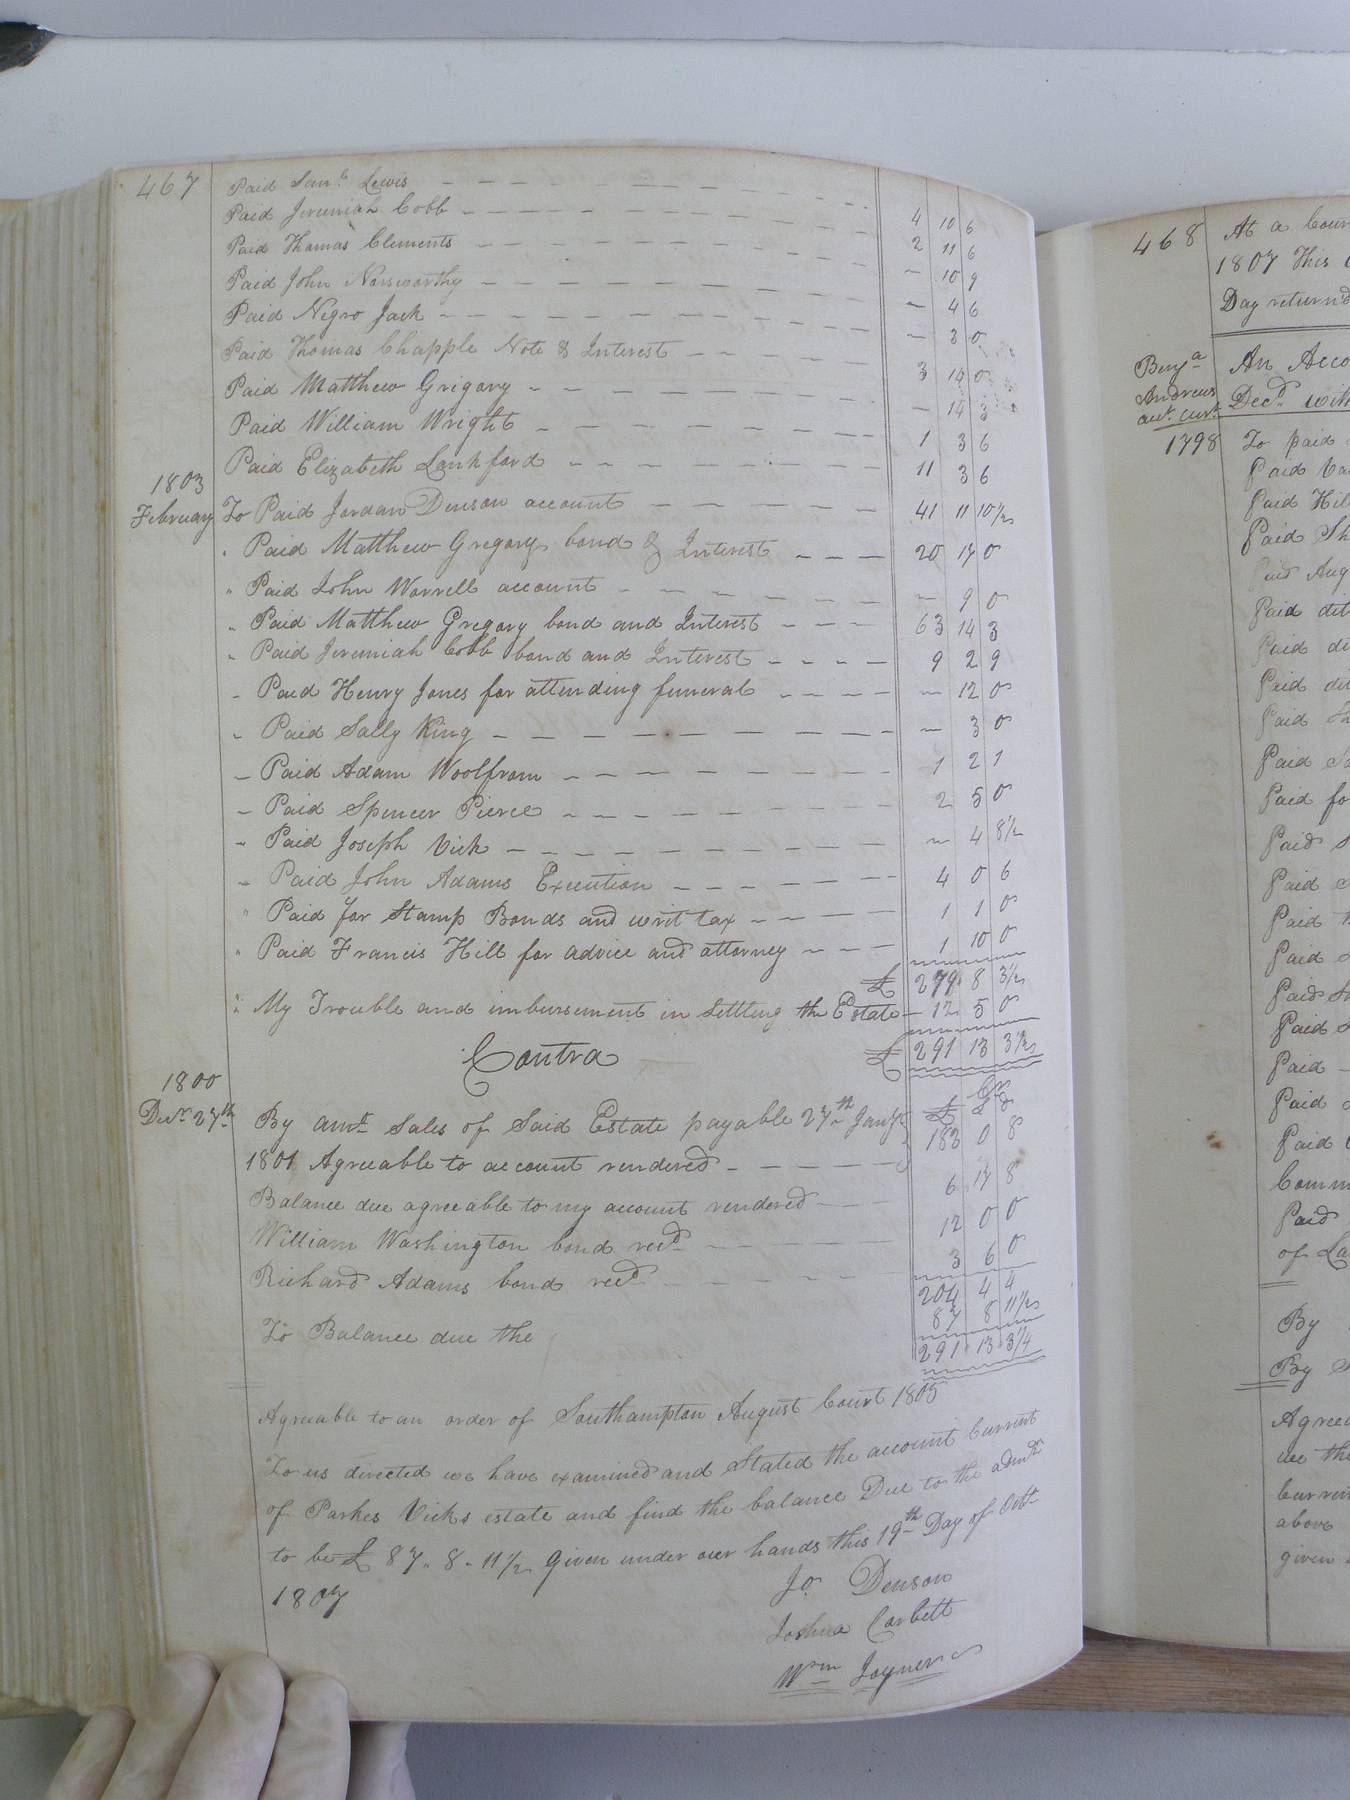 467
Paid Saml. Lewis 4 10 6
Paid Jeremiah Cobb 2 11 6
Paid Thomas Clements 10 9
Paid John Norsworthy 4 6
Paid Negro Jack 3 0
Paid Thomas Chapple Note & Interest 3 14 0
Paid Matthew Grigory 14 3
Paid William Wright 1 3 6
Paid Elizabeth Lankford 11 3 6
1803
February To Paid Jordan Denson account 41 11 10½
" Paid Matthew Gregory bond & Interest 20 17 0
" Paid John Worrell account 9 0
" Paid Matthew Gregory bond and Interest 63 14 3
" Paid Jeremiah Cobb bond and Interest 9 2 9
" Paid Henry Jones for attending funeral 12 0
" Paid Sally King 3 0
" Paid Adam Woolfram 1 2 1
" Paid Spencer Pierce 2 5 0
" Paid Joseph Vick 4 8½
" Paid John Adams Execution 4 0 6
" Paid for Stamp Bonds and writ tax 1 1 0
" Paid Francis Hill for advice and attorney 1 10 0
£ 279 8 3½
" My Trouble and imbursement in Settling the Estate 12 5 0
Contra £ 291 13 3½
Cr
1800
Decr. 27th By amt. Sales of Said Estate payable 27th Jany £ S d
1801 Agreeable to account rendered 183 0 8
Balance due agreeable to my account rendered 6 17 8
William Washington bond recd. 12 0 0
Richard Adams bond recd. 3 6 0
204 4 4
To Balance due the 87 8 11½
291 13 3¼
Agreeable to an order of Southampton August Court 1805
To us directed we have examined and Stated the account Current
of Parkes Vicks estate and find the balance Due to the admr.
to be £ 87.. 8.. 11½ Given under our hands this 19th Day of Octr.
1807
Jo. Denson
Joshua Corbett
Wm. Joyner
468 At a Cour
1807 This
Day returnd
Benja.
Andrews
act. Curt.
An Acco
Decd. with
1798 To paid
Paid
Paid Hil
Paid Sh
Paid Aug
Paid dit
Paid di
Paid di
Paid
Paid
Paid fo
Paid
Paid
Paid
Paid
Paid
Paid
Paid
Paid
Paid
Comm
Paid
of La
By
By S
Agree
we the
Curren
above
given